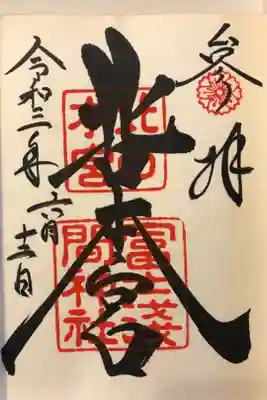 参拝
北口
本宮
冨士浅
間神社
令和二年六月十二日